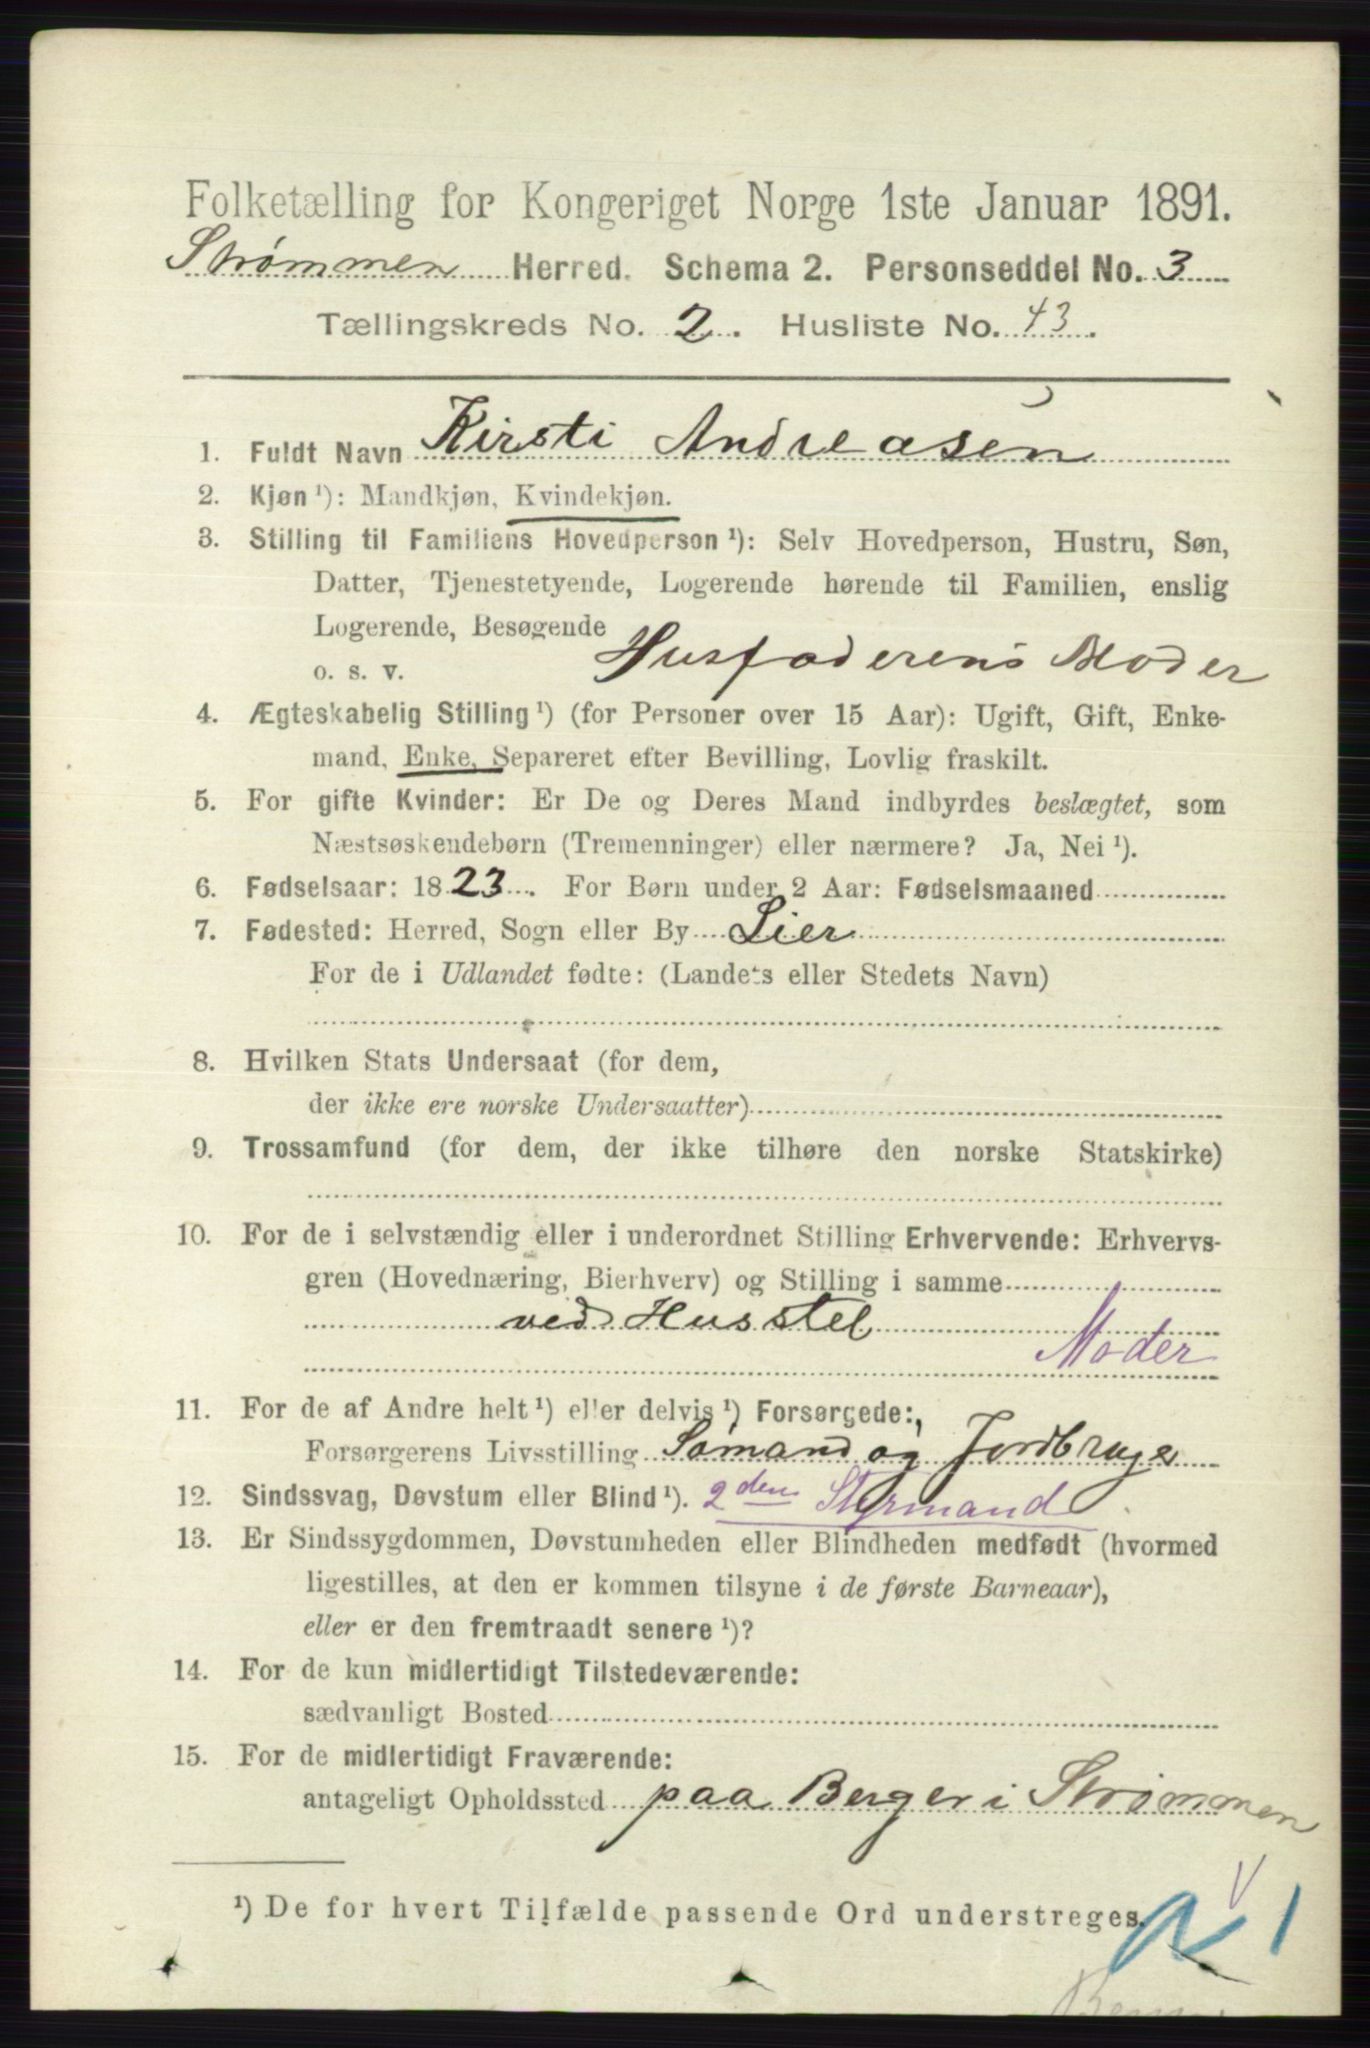 Folketælling for Kongeriget Norge 1ste Januar 1891.
Strømmen Herred. Schema 2. Personseddel No. 3
Tællingskreds No. 2. Husliste No. 43.
1. Fuldt Navn Kirsti Andreasen
2. Kjøn ¹): Mandkjøn, Kvindekjøn.
3. Stilling til Familiens Hovedperson ¹): Selv Hovedperson, Hustru, Søn,
Datter, Tjenestetyende, Logerende hørende til Familien, enslig
Logerende, Besøgende
o. s. v. Husfaderens Moder
4. Ægteskabelig Stilling ¹) (for Personer over 15 Aar): Ugift, Gift, Enke-
mand, Enke, Separeret efter Bevilling, Lovlig fraskilt.
5. For gifte Kvinder: Er De og Deres Mand indbyrdes beslægtet, som
Næstsøskendebørn (Tremenninger) eller nærmere? Ja, Nei ¹).
6. Fødselsaar: 1823. For Børn under 2 Aar: Fødselsmaaned
7. Fødested: Herred, Sogn eller By Lier
For de i Udlandet fødte: (Landets eller Stedets Navn)
8. Hvilken Stats Undersaat (for dem,
der ikke ere norske Undersaatter)
9. Trossamfund (for dem, der ikke tilhøre den norske Statskirke)
10. For de i selvstændig eller i underordnet Stilling Erhvervende: Erhvervs-
gren (Hovednæring, Bierhverv) og Stilling i samme
ved Husstel
Moder
11. For de af Andre helt ¹) eller delvis ¹) Forsørgede:,
Forsørgerens Livsstilling Sømand og Jordbruge
12. Sindssvag, Døvstum eller Blind ¹). 2den Styrmand
13. Er Sindssygdommen, Døvstumheden eller Blindheden medfødt (hvormed
ligestilles, at den er kommen tilsyne i de første Barneaar),
eller er den fremtraadt senere ¹)?
14. For de kun midlertidigt Tilstedeværende:
sædvanligt Bosted
15. For de midlertidigt Fraværende:
antageligt Opholdssted paa Berger i Strømmen
¹) De for hvert Tilfælde passende Ord understreges.